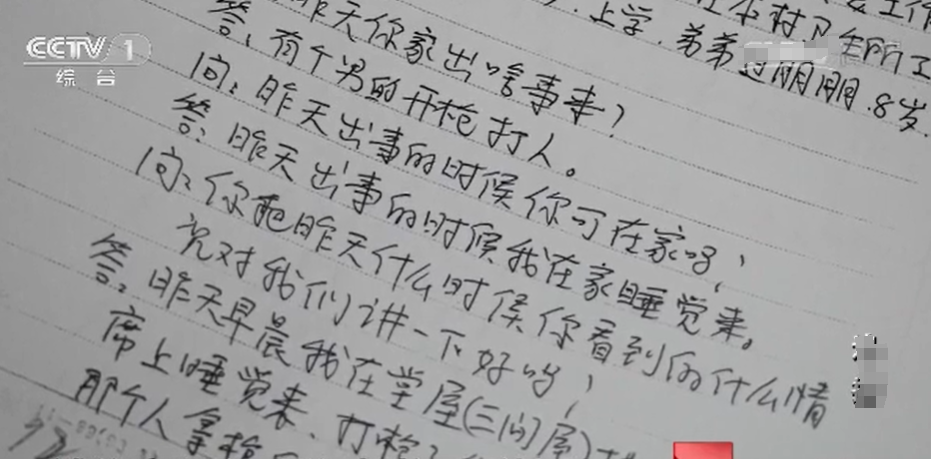 CCTV 1
综合
上学.弟弟过朋朋.8岁.
昨天你家出啥事来?
答:有个男的开枪打人。
问:昨天出事的时候你可在家吗,
答:昨天出事的时候我在家睡觉来。
问:你把昨天什么时候你看到的什么情
况对我们讲一下好吗,
答:昨天早晨我在堂屋(三间屋)
席上睡觉来.打枪
那个人拿枪